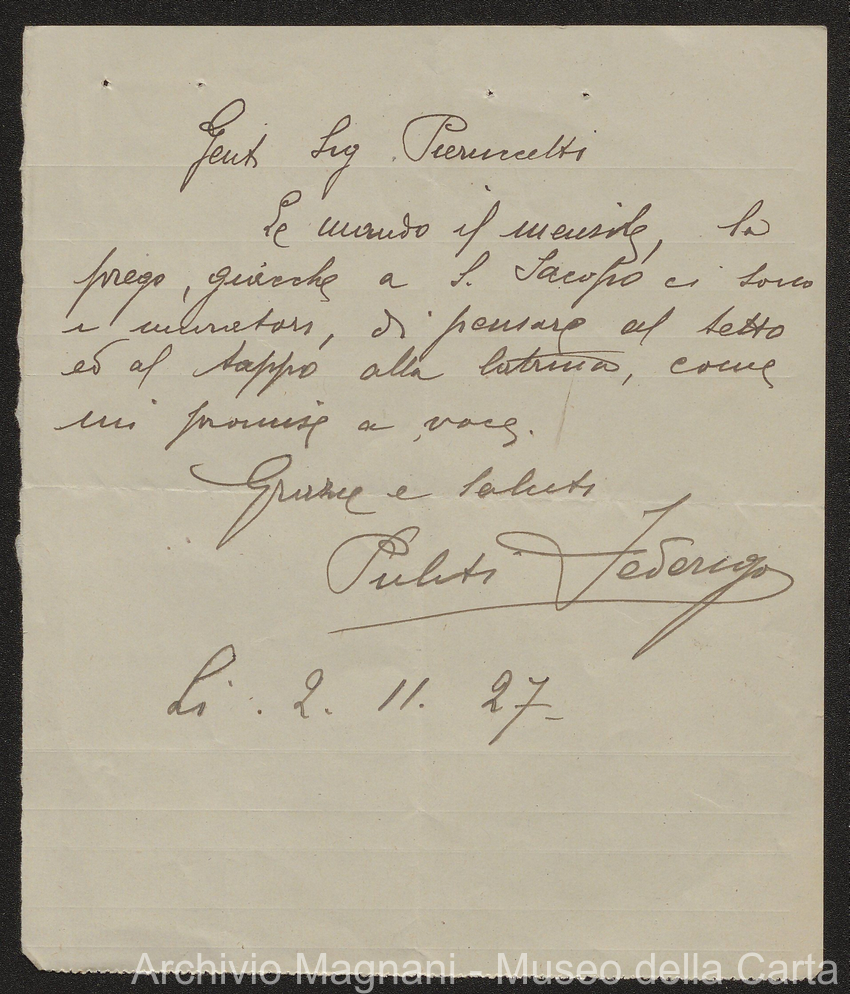 Gent Sig. Pieruccetti
Le mando il mensile, la
prego, giacche a S. Jacopo ci sono
i muratori, di pensare al tetto
ed al tappo alla latrina, come
mi promise a voce.
Grazie e saluti
Puliti Federigo
Li. 2. 11. 27_
Archivio Magnani - Museo della Carta